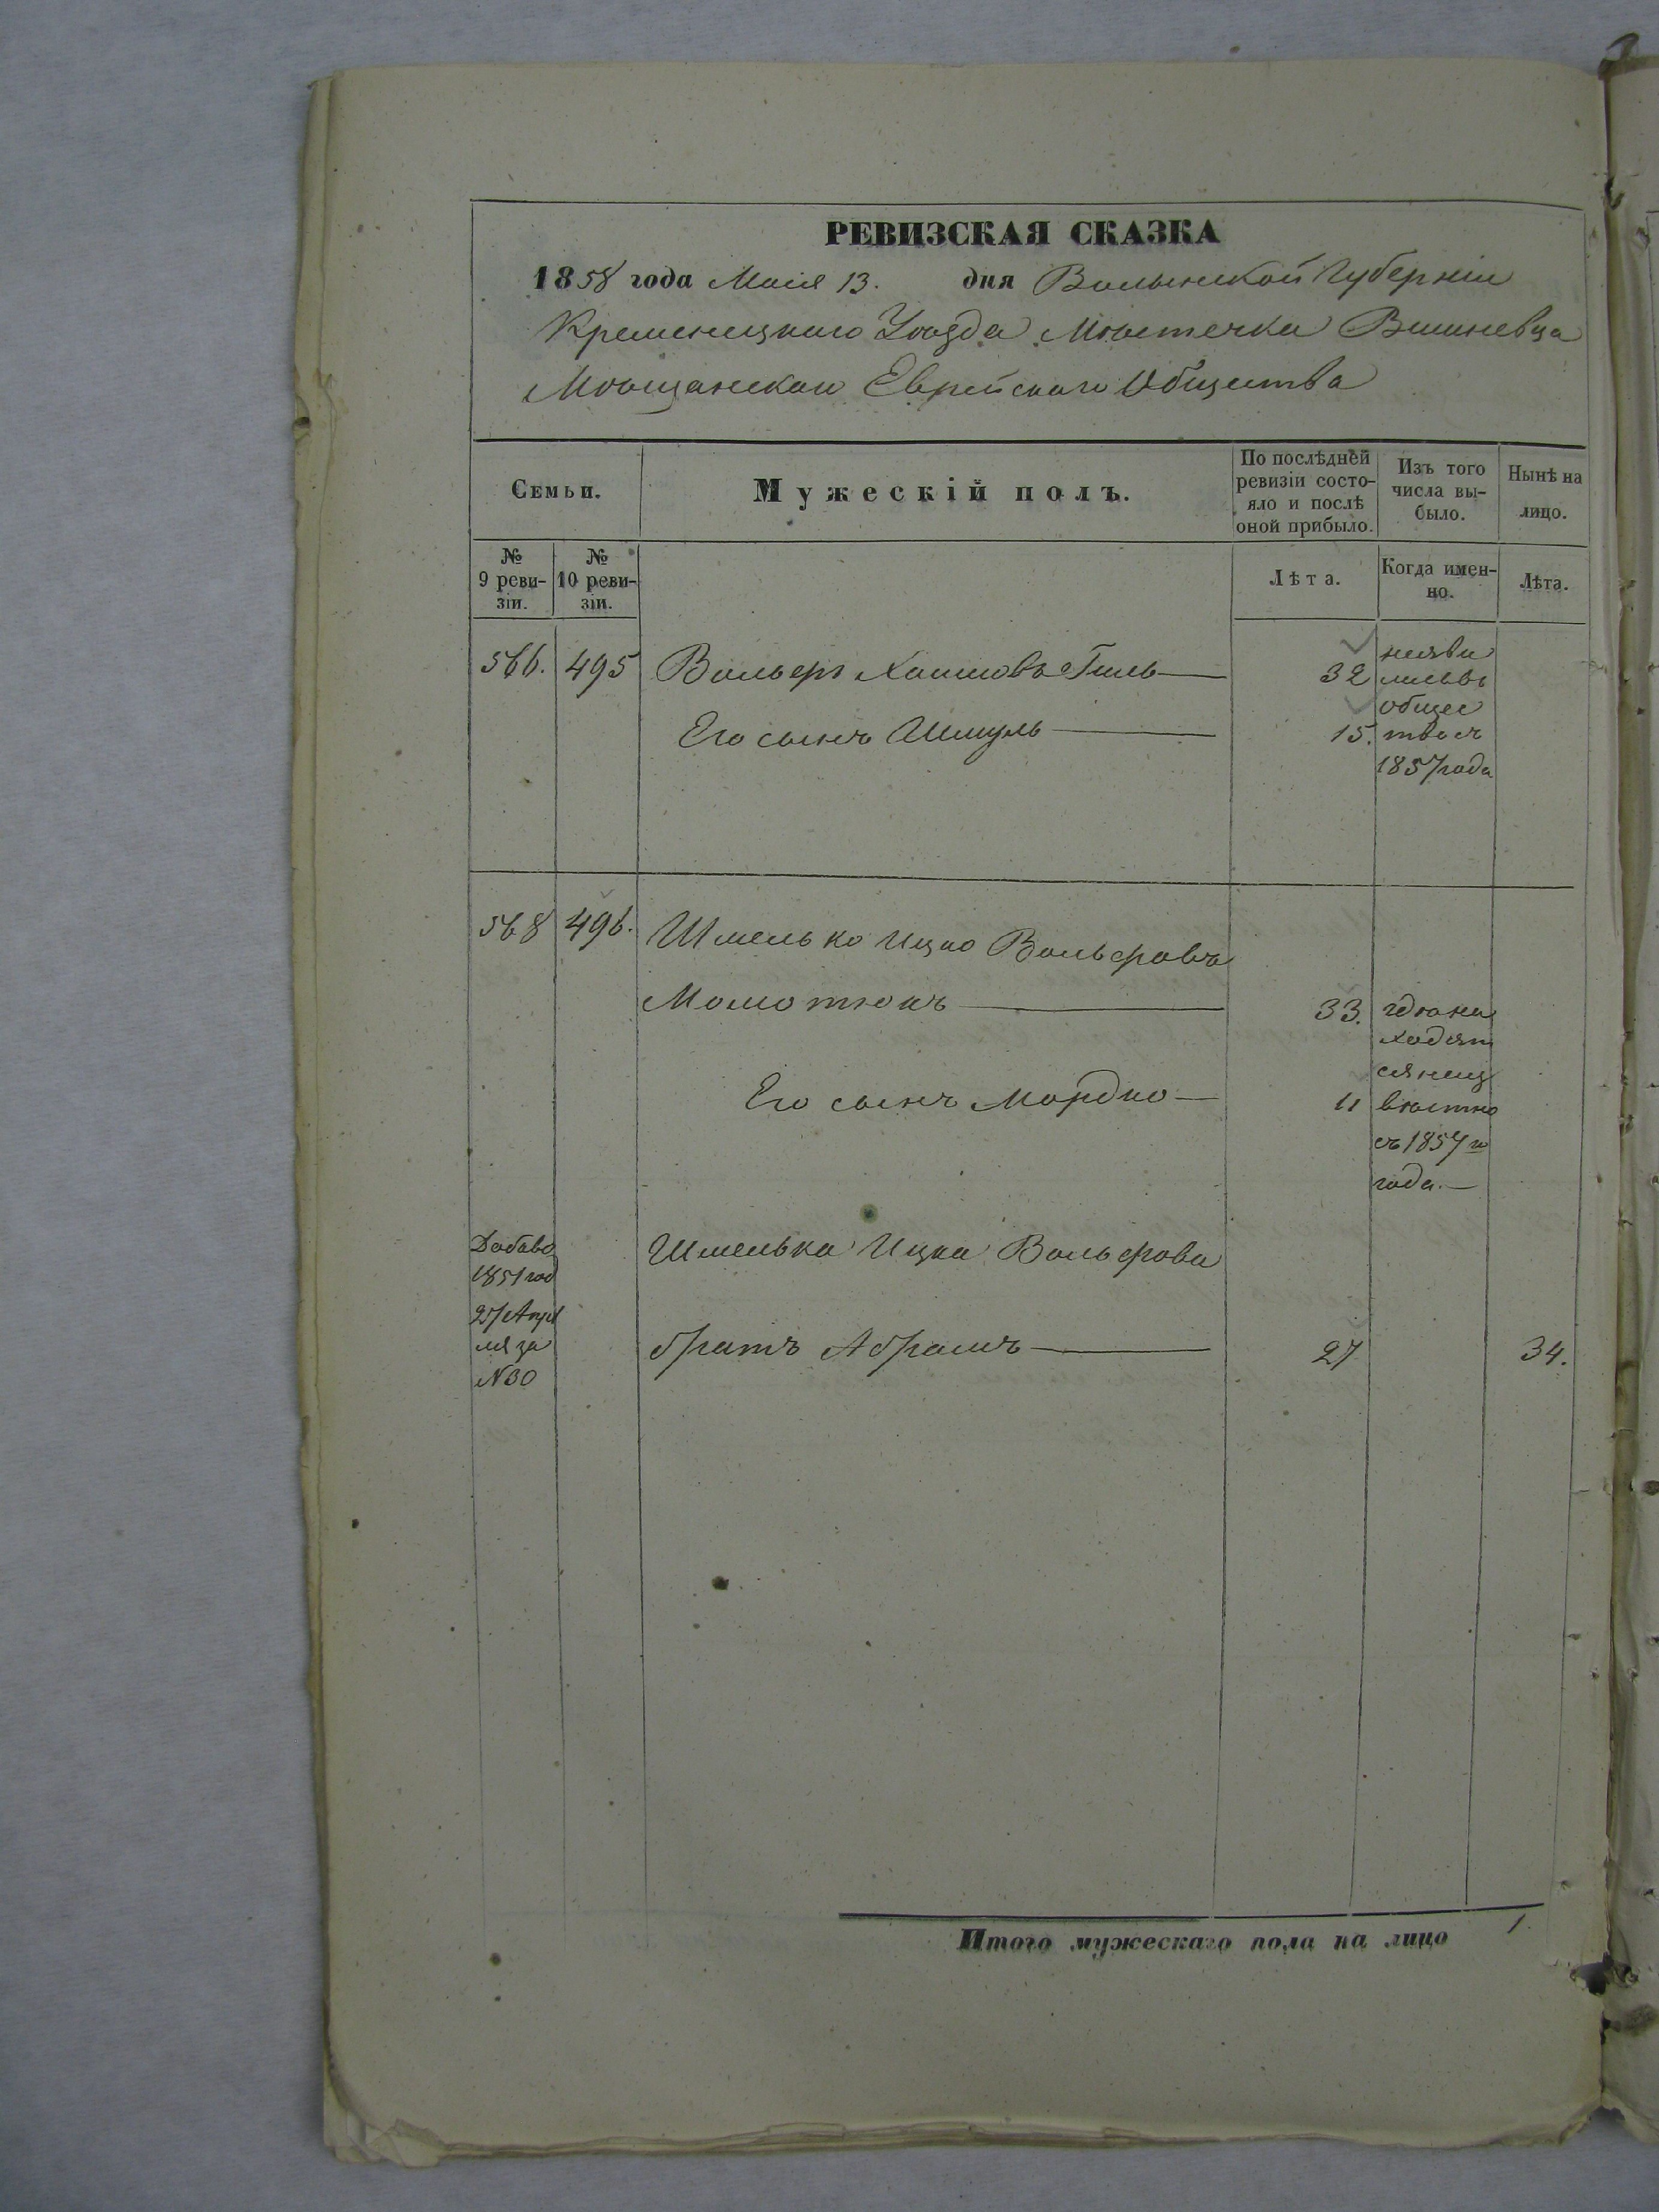 РЕВИЗСКАЯ СКАЗКА
1858 года Маія 13. дня Волынской Губерніи
Кременецкаго Уѣзда Мѣстечка Вишневца
Мѣщанскаго Еврейскаго Общества
Семьи.
Мужескій полъ.
По послѣдней
ревизіи состо-
яло и послѣ
оной прибыло.
Изъ того
числа вы-
было.
Нынѣ на
лицо.
№
9 реви-
зіи.
№
10 реви-
зіи.
Лѣта.
Когда имен-
но.
Лѣта.
566. 495 Вольфъ Хаимовъ Гиль 32
Его сынъ Шмуль 15.
неяви
лись въ
общес
тво съ
1857 года
568 496. Шмелько Ицко Вольфовъ
Молотокъ 33.
Его сынъ Мордко 11
гдѣ на
ходят
ся неиз
вѣстно
съ 1857 го
года.
Добавоч
1851 год
27 Апре
ля за
N 30
Шмелька Ицка Вольфова
братъ Абрамъ 27 34.
Итого мужескаго пола на лицо 1.